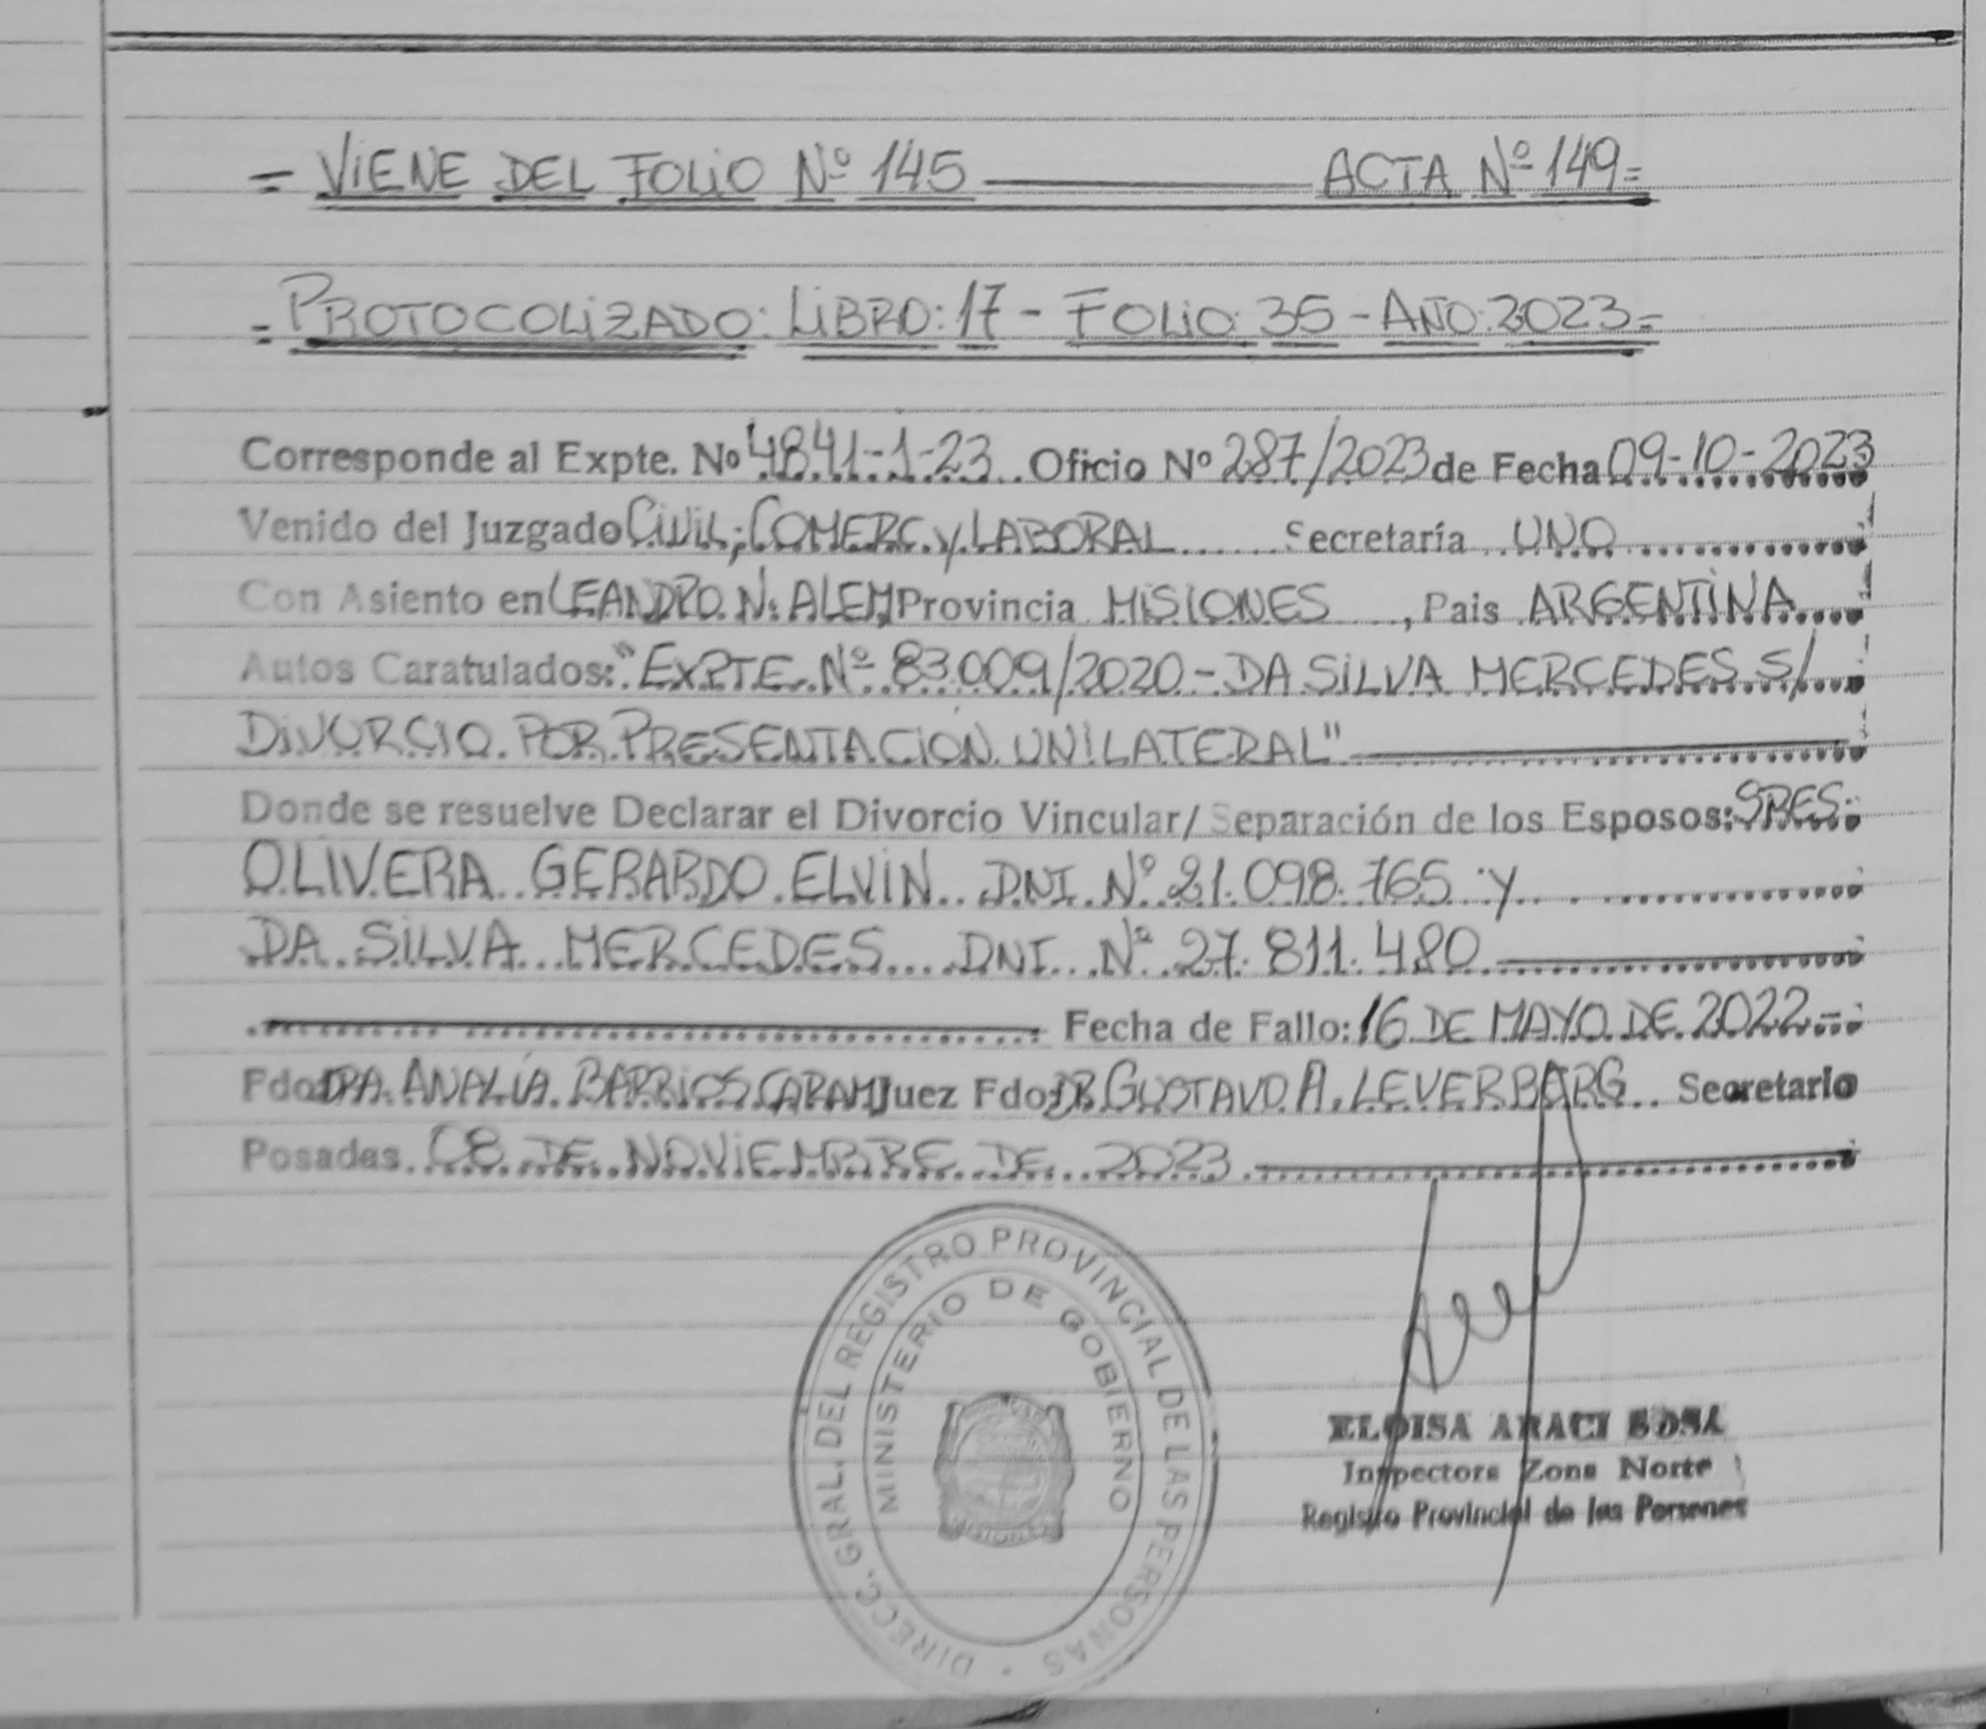 = VIENE DEL FOLIO Nº 145 ACTA Nº 149=
= PROTOCOLIZADO: LIBRO: 17 - FOLIO: 35 - AÑO: 2023=
Corresponde al Expte. Nº 4841-1-23 Oficio Nº 287/2023 de Fecha 09-10-2023
Venido del Juzgado CIVIL; COMERC. y LABORAL Secretaría UNO
Con Asiento en LEANDRO N. ALEM, Provincia MISIONES, Pais ARGENTINA
Autos Caratulados: "EXPTE. Nº 83.009/2020 - DA SILVA MERCEDES S/
DIVORCIO POR PRESENTACION UNILATERAL"
Donde se resuelve Declarar el Divorcio Vincular/ Separación de los Esposos: SRES:
OLIVERA GERARDO ELVIN DNI Nº 21.098.765 y
DA SILVA MERCEDES DNI Nº 27.811.480
Fecha de Fallo: 16 DE MAYO DE 2022=
Fdo DRA. ANALIA BARRIOS Juez Fdo: DR GUSTAVO A. LEVERBARG Secretario
Posadas 08 DE NOVIEMBRE DE 2023
DIRECC. GRAL. DEL REGISTRO PROVINCIAL DE LAS PERSONAS
MINISTERIO DE GOBIERNO
ELOISA ARACI SOSA
Inspectora Zona Norte
Registro Provincial de las Personas